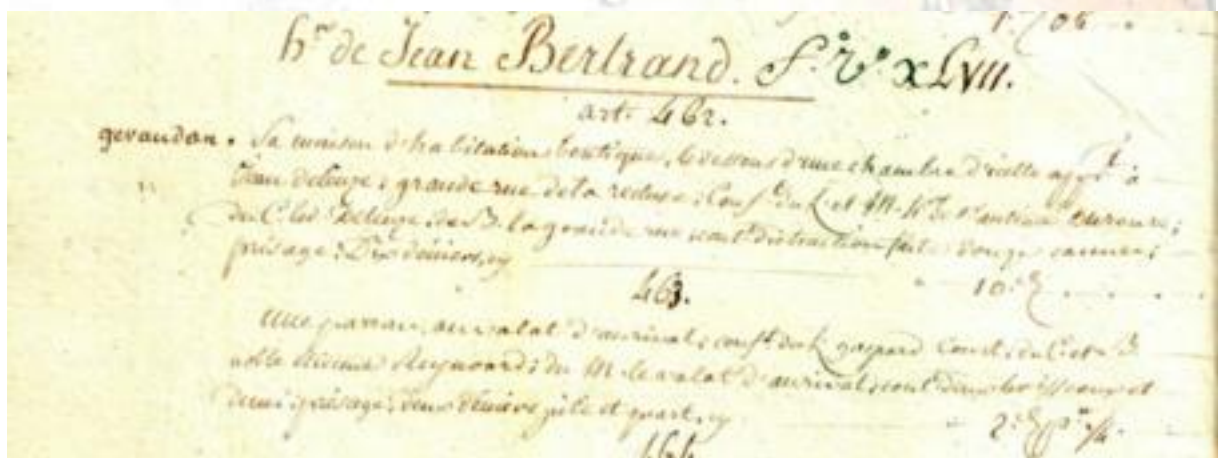 1. 06
h.rs de Jean Bertrand. f.o v.o XLVII.
art. 462.
gevaudan. Sa maison d'habitation, boutique, le dessous d'une chambre d'icelle app.t à
Jean Deleuze; grande rue de la recluse; Conf.t du L. et M. h.rs d'antoine
du C. led. Deleuze; du B. la grande rue; cont.t distraction faite douze cannes;
présage: Dix deniers, cy 10.
463.
Une au valat d'aurival; conf.t du L. gaspard du C. et B.
noble du M. le valat d'aurival; cont.t deux boisseaux et
demi; présage: deux deniers pite et quart, cy 2.
464